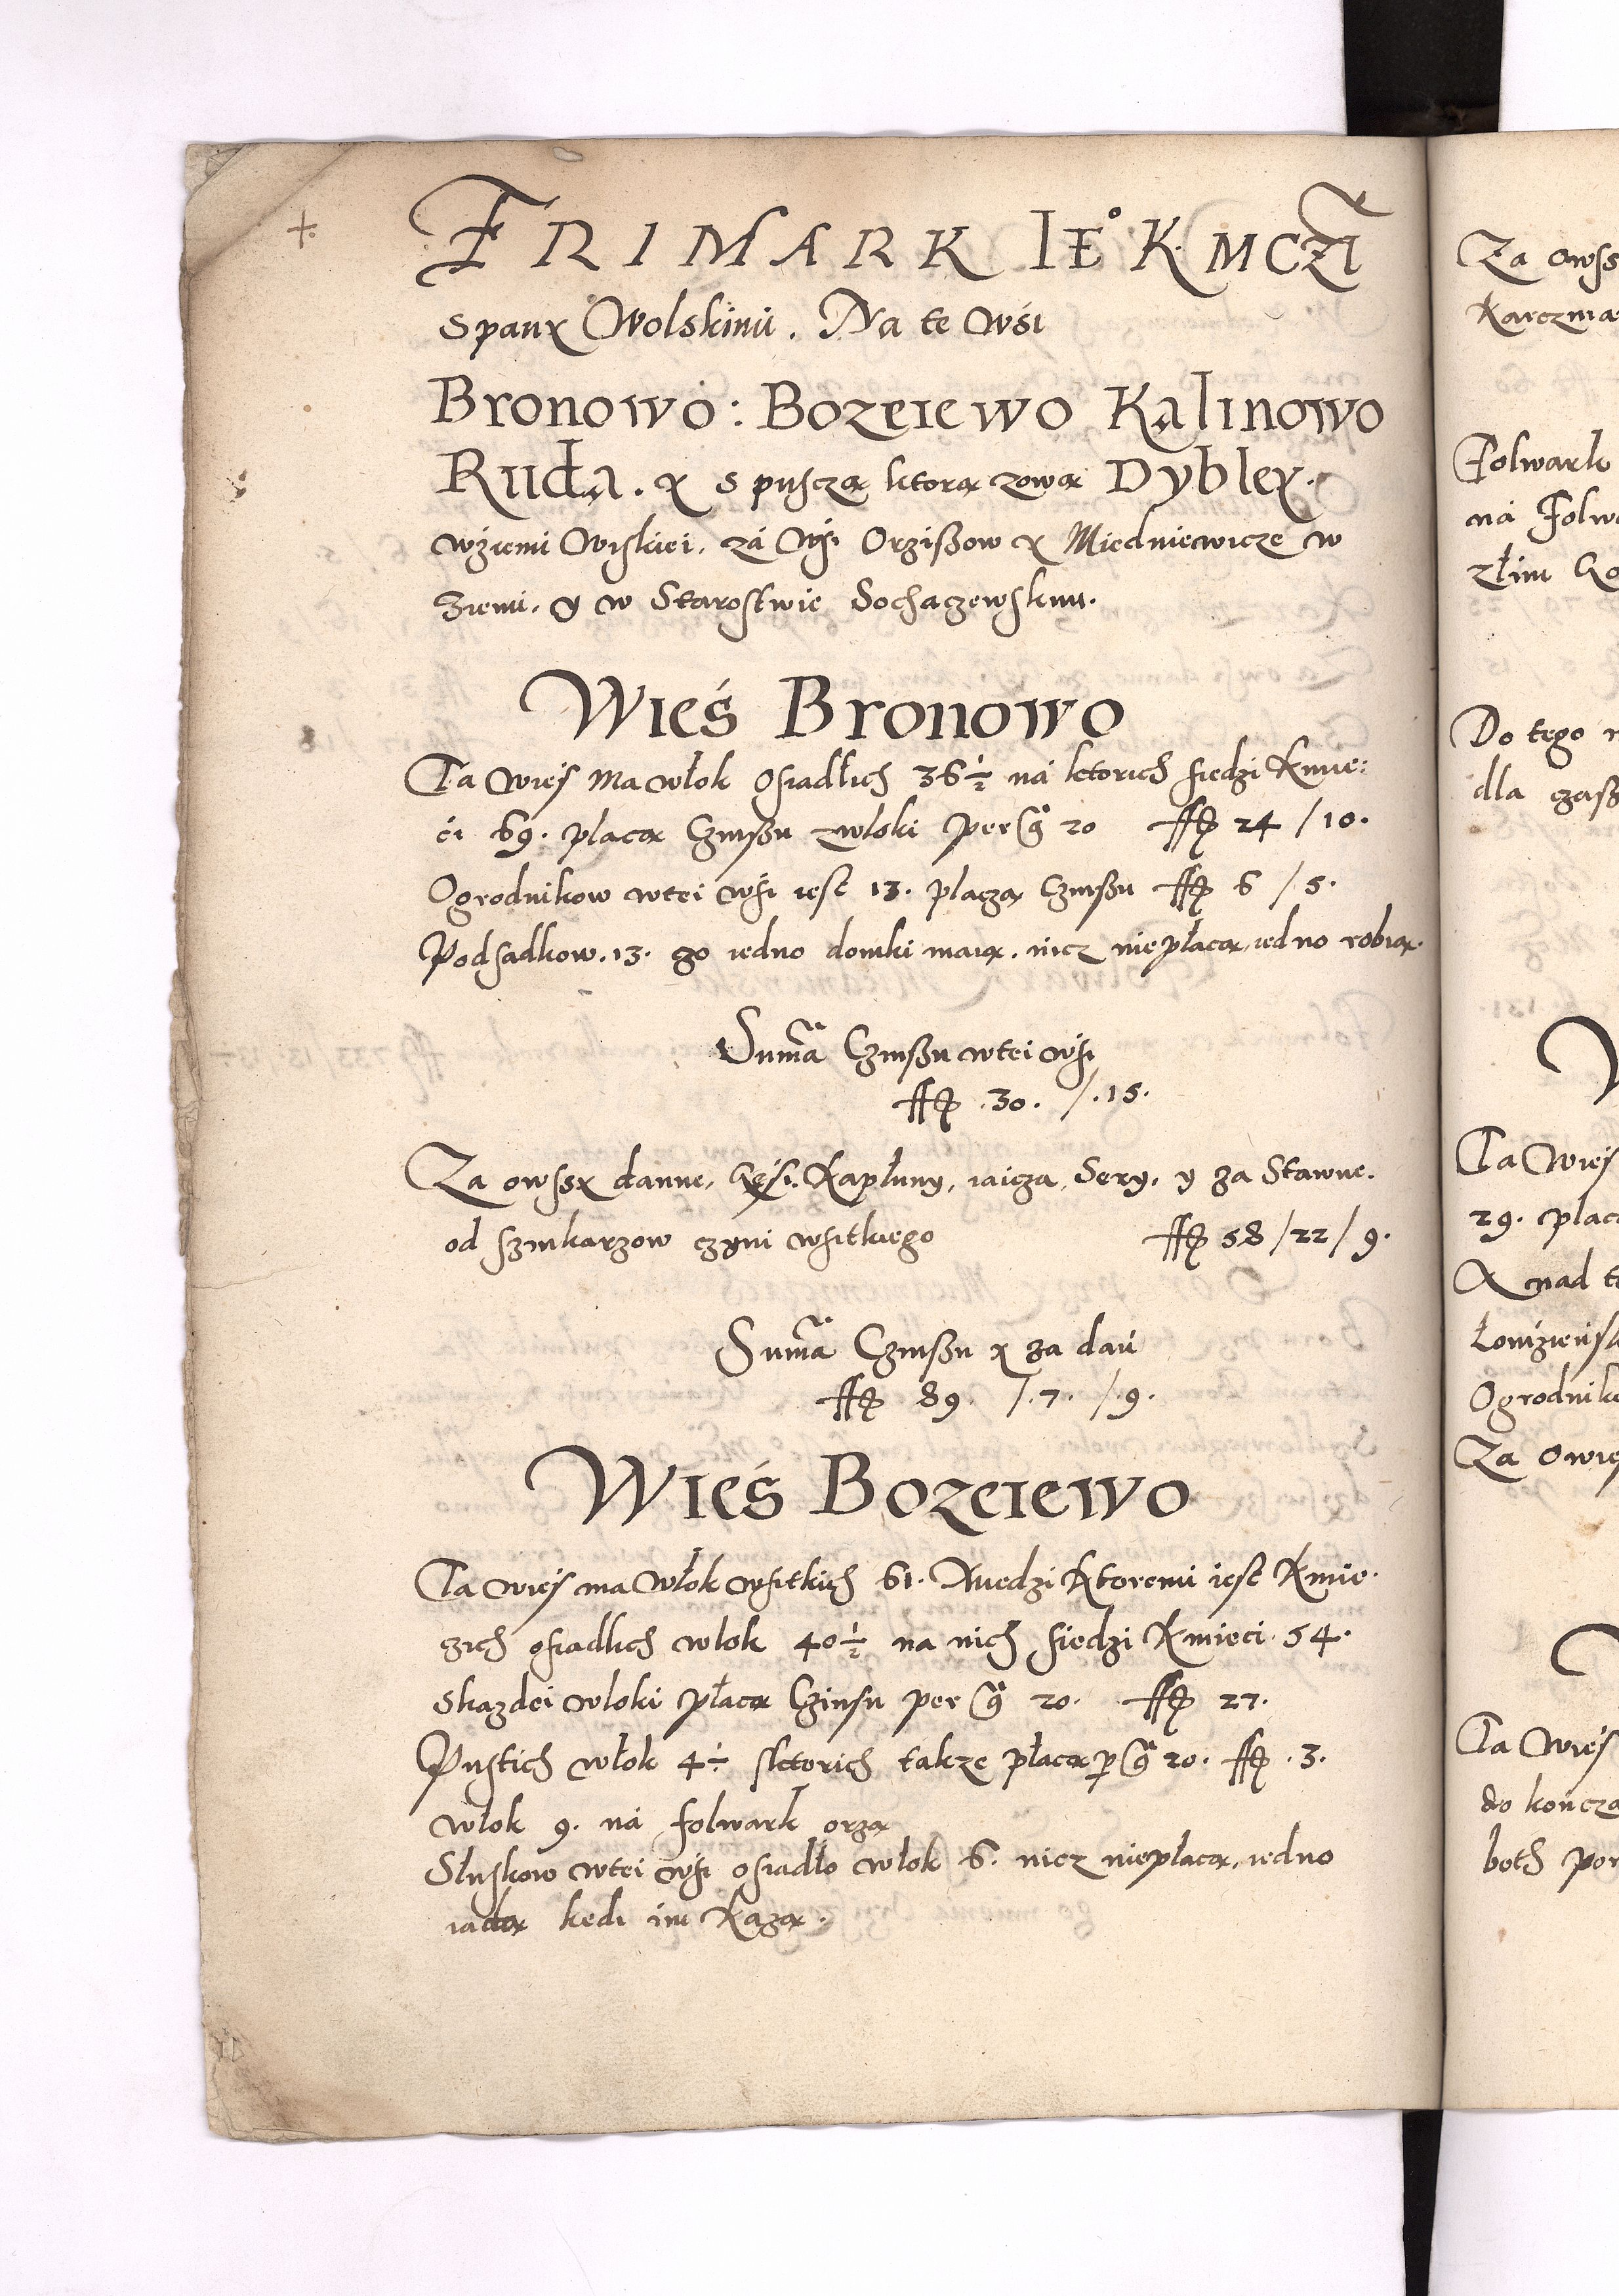 FRIMARK IE° K. MCZI
S panx Wolskimi. Na te wśi
Bronowo: Bozeiewo Kalinowo
Ruda. x s pusczą ktorą zową Dybley.
wźiemi Wiskiei, zá wśi Orgißow x Miedniewicze w
Ziemi, y w Starostwie Sochaczewskim.
Wieś Bronowo
Ta Wieś Ma włok Osiadłich 36 1/2 ná ktorich siedzi Kmie:
ći 69. płacą Czinßu zwłoki per gr 20 ff 24 / 10.
Ogrodnikow wtei wśi iest 13. płaczą Czinßu ff 6 / 5.
Podsadkow. 13. go iedno domki maią. nicz niepłacą, iedno robią.
Suma Czinßu wtei wśi
ff .30. /. 15.
Za owssx danne, Gęsi. Kapłuny, iaicza, Sery, y za Stawne.
od szinkarzow czyni wsitkiego ff 58 / 22 / 9.
Suma Czinßu x za dań
ff 89. /. 7. /. 9.
Wieś Bozeiewo
Ta wieś ma Włok wsitkich 61. Miedzi Ktoremi iest Kmie.
zich osiadlich włok 40 1/2 na nich siedzi Kmieci. 54.
Skazdei włoki płacą Czinsu per gr 20. ff 27.
Pustich włok 4 1/2 sktorich takze płacą p gr 20. ff .3.
włok 9. ná folwark orzą
Słuskow wtei wśi osiadło włok 6. nicz niepłacą, iedno
iadą kedi im Kazą.
Za owss
Karczma
Folwark
ná Folw
złim
Do tego
dla czaß
Ta Wieś
29. płac
A nad t
Łomzieńs
Ogrodnik
Za Owie
Ta Wieś
do kończ
both por